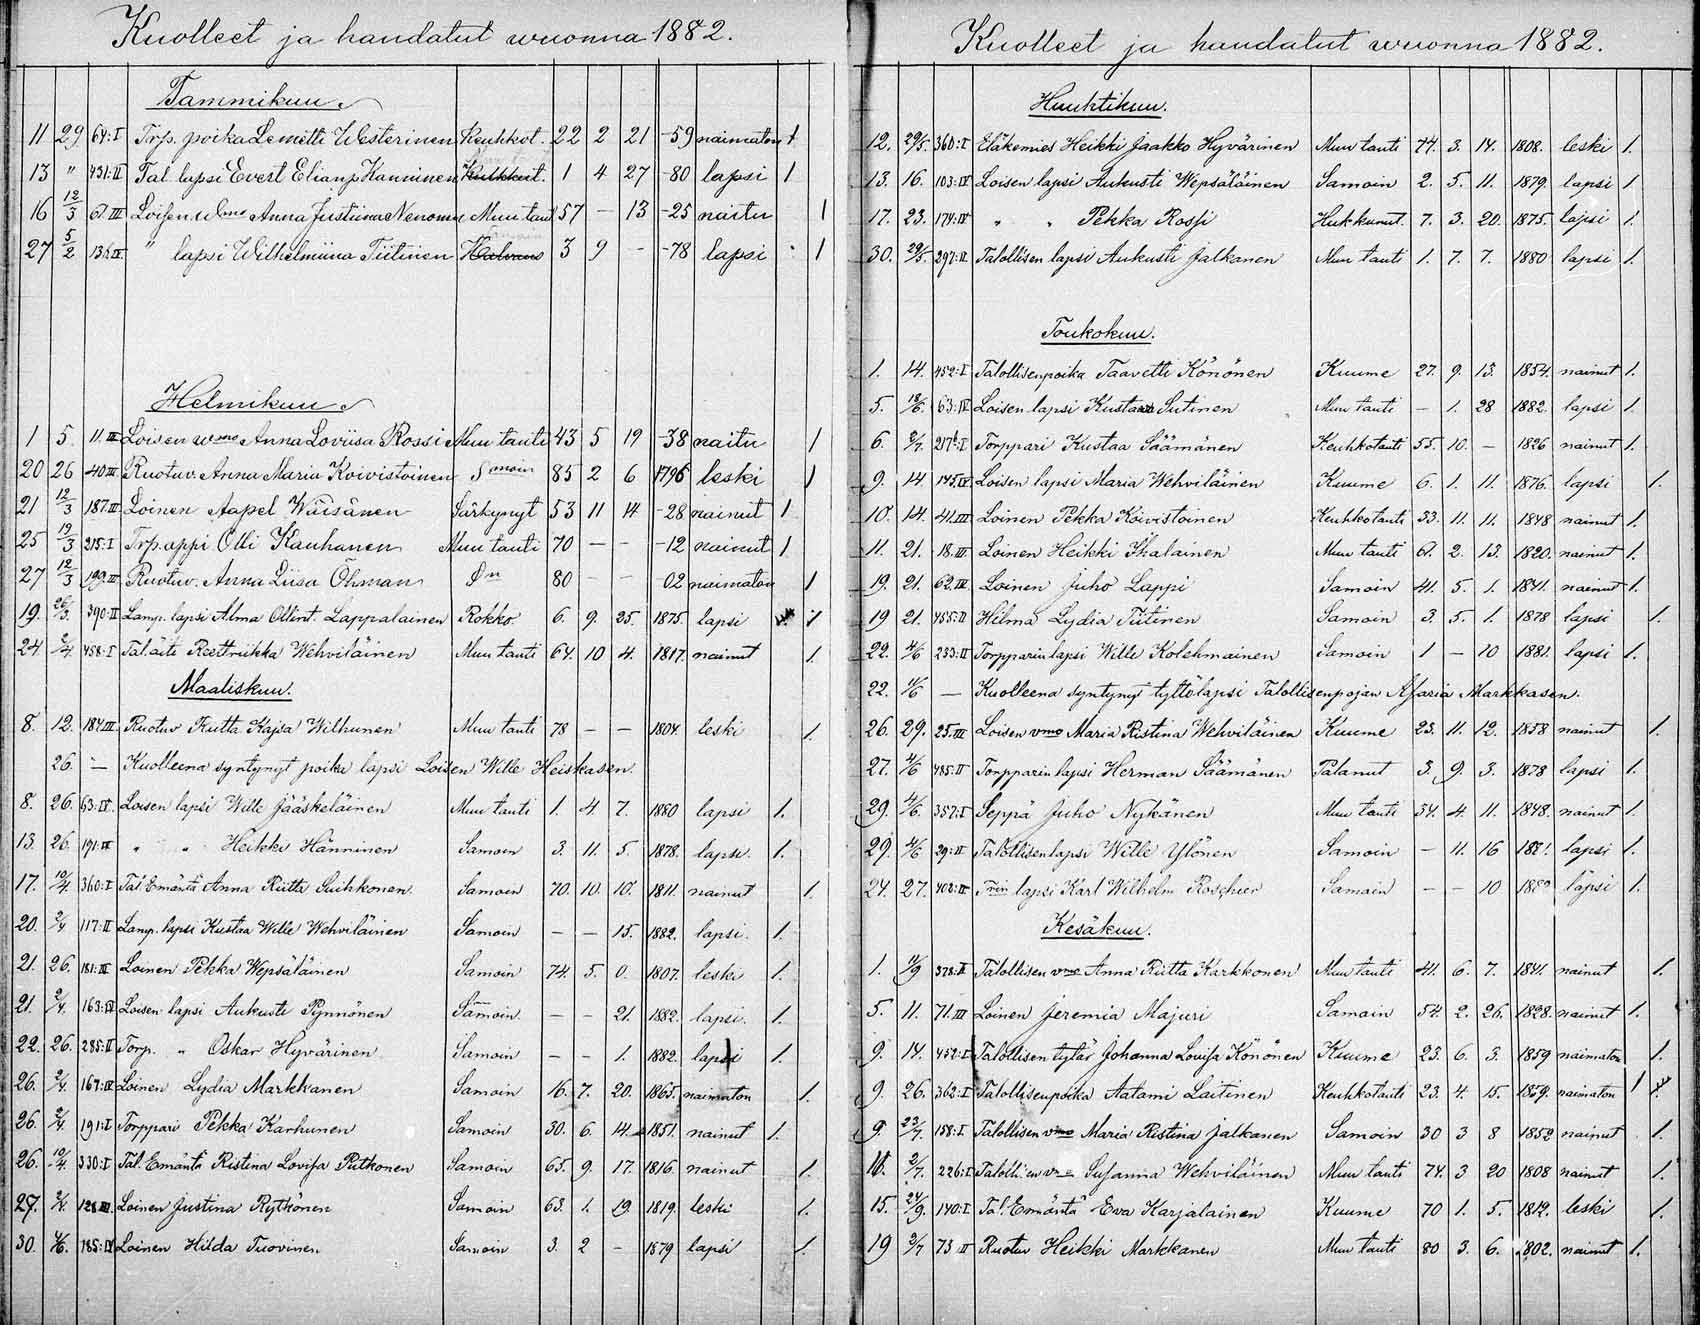 Kuolleet ja haudatut wuonna 1882.
Tammikuu
11 29 64:I Trp. poika Lemetti Westerinen Keuhkot. 22 2 21 -59 naimaton 1
13 " 431:II Tal. lapsi Evert Elianp. Kanninen 1 4 27 -80 lapsi 1
16 12/3 Loisen wmo Anna Justiina Nenonen Muu taut 57 — 13 -25 naitu 1
27 5/2 " lapsi Wilhelmiina Tiitinen 3 9 - -78 lapsi 1
Helmikuu
1 5 11 III Loisen wmo Anna Loviisa Rossi Muu tauti 43 5 19 -38 naitu 1
20 26 40 III Ruotuv. Anna Maria Koivistoinen Smoin 85 2 6 1796 leski 1
21 12/3 187.III Loinen Aapel Wäisänen Särkynyt 53 11 14 -28 nainut 1
25 19/3 215.I Trp. appi Olli Kauhanen Muu tauti 70 — — -12 nainut 1
27 12/3 199.III Ruotuv. Anna Liisa Öhman 80 — — 02 naimaton 1
19. 26/3. 390:II Lamp. lapsi Alma Ollint. Lappalainen Rokko. 6. 9. 25. 1875. lapsi 1
24. 2/4. 458:I Tal. äiti Reettriikka Wehviläinen Muu tauti 64. 10 4. 1817. nainut 1.
Maaliskuu.
8. 12. 184.III. Ruotuv Riitta Kajsa Wilhunen Muu tauti 78 — — 1804. leski 1.
26. — Kuolleena syntynyt poika lapsi Loisen Wille Heiskasen.
8. 26. 63:IV. Loisen lapsi Wille Jääskeläinen Muu tauti 1. 4 7. 1880 lapsi 1.
13. 26. 191:IV " " Heikki Hänninen Samoin 3. 11. 5. 1878. lapsi. 1.
17. 10/4. 360:I Tal. Emäntä Anna Riitta Suhkonen Samoin 70. 10. 10. 1811. nainut 1.
20. 2/4 117:II Lamp. lapsi Kustaa Wille Wehviläinen Samoin — — 15. 1882. lapsi. 1.
21. 26. 181:III Loinen Pekka Wepsäläinen Samoin 74. 5. 0. 1807. leski 1.
21. 2/4. 163:IV Loisen lapsi Aukusti Pynnönen Samoin. — — 21. 1882. lapsi. 1.
22. 26. 285:II Torp. " Oskar Hyvärinen Samoin — — 1. 1882. lapsi 1.
26. 2/4. 167:IV Loinen Lydia Markkanen Samoin 16. 7. 20. 1865. naimaton 1.
26. 2/4. 191:I Torppari Pekka Karhunen Samoin 30. 6. 14. 1851. nainut 1.
26. 10/4. 330:I Tal. Emäntä Ristina Lovisa Putkonen Samoin 65. 9. 17. 1816. nainut 1.
27. 2/4. 128 III. Loinen Justina Rytkönen Samoin 63. 1. 19. 1819. leski 1.
30. Loinen Hilda Tuovinen Samoin 3. 2 — 1879 lapsi 1.
Kuolleet ja haudatut wuonna 1882.
Huuhtikuu.
12. 29/5. 360:I Eläkemies Heikki Jaakko Hyvärinen Muu tauti 74. 3. 14. 1808. leski 1.
13. 16. 103:IV Loisen lapsi Aukusti Wepsäläinen Samoin 2. 5. 11. 1879. lapsi 1.
17. 23. 174:IV " " Pekka Rossi Hukkunut. 7. 3. 20. 1875. lapsi 1.
30. 29/5. 297:II Talollisen lapsi Aukusti Jalkanen Muu tauti 1. 7. 7. 1880 lapsi 1.
Toukokuu.
1. 14. 452:I Talollisenpoika Taavetti Könönen Kuume 27. 9. 13. 1854. nainut 1.
5. 18/6. 63:IV Loisen lapsi Kustaa Sutinen Muu tauti — 1. 28 1882. lapsi 1.
6. 2/7. Torppari Kustaa Säämänen Keuhkotauti 55. 10. — 1826 nainut 1.
9. 14 145.IV Loisen lapsi Maria Wehviläinen Kuume 6. 1. 11. 1876. lapsi 1.
10. 14. 41.III Loinen Pekka Koivistoinen Keuhkotauti 33. 11. 11. 1848 nainut 1.
11. 21. 18.III Loinen Heikki Ikalainen Muu tauti 61. 2. 13. 1820. nainut 1.
19. 21. 62.III. Loinen Juho Lappi Samoin 41. 5. 1. 1841. nainut 1.
19 21. 455:II Hilma Lydia Tiitinen Samoin 3. 5. 1. 1878 lapsi 1.
22. 4/6 233:II Torpparin lapsi Wille Kolehmainen Samoin 1 — 10 1881. lapsi 1.
22. 4/6 — Kuolleena syntynyt tyttölapsi Talollisenpojan Asaria Markkasen.
26. 29. 25.III Loisen vmo Maria Ristina Wehviläinen Kuume 23. 11. 12. 1858 nainut 1.
27. 4/6 485:II Torpparin lapsi Herman Säämänen Palanut 3. 9. 3. 1878 lapsi 1.
29. 4/6. 357:I Seppä Juho Nykänen Muu tauti 34. 4. 11. 1848. nainut 1.
29. 4/6 29:II Talollisen lapsi Wille Ylönen Samoin — 11. 16 1881. lapsi 1.
24. 27. 402:II lapsi Karl Wilhelm Roschier Samoin — — 10 1882 lapsi 1.
Kesäkuu.
1. 378:II Talollisen vmo Anna Riitta Karkkonen Muu tauti 41. 6. 7. 1841. nainut 1.
5. 11. 71.III Loinen Jeremia Majuri Samoin 54. 2. 26. 1828. nainut 1.
9. 14. 452:I Talollisen tytär Johanna Lovisa Könönen Kuume 23. 6. 3. 1859 naimaton 1.
9. 26. 362:I Talollisenpoika Aatami Laitinen Keuhkotauti 23. 4. 15. 1859. naimaton 1
9. 23/7. 158:I. Talollisen vmo Maria Ristina Jalkanen Samoin 30 3 8 1852 nainut 1.
2/7. 226:I Talollisen Susanna Wehviläinen Muu tauti 74. 3 20 1808 nainut 1.
15. 24/9. 140:I Tal. Emäntä Eva Karjalainen Kuume 70 1. 5. 1812. leski 1.
19 2/7 73 II Ruotuv Heikki Markkanen Muu tauti 80 3. 6. 1802. nainut 1.